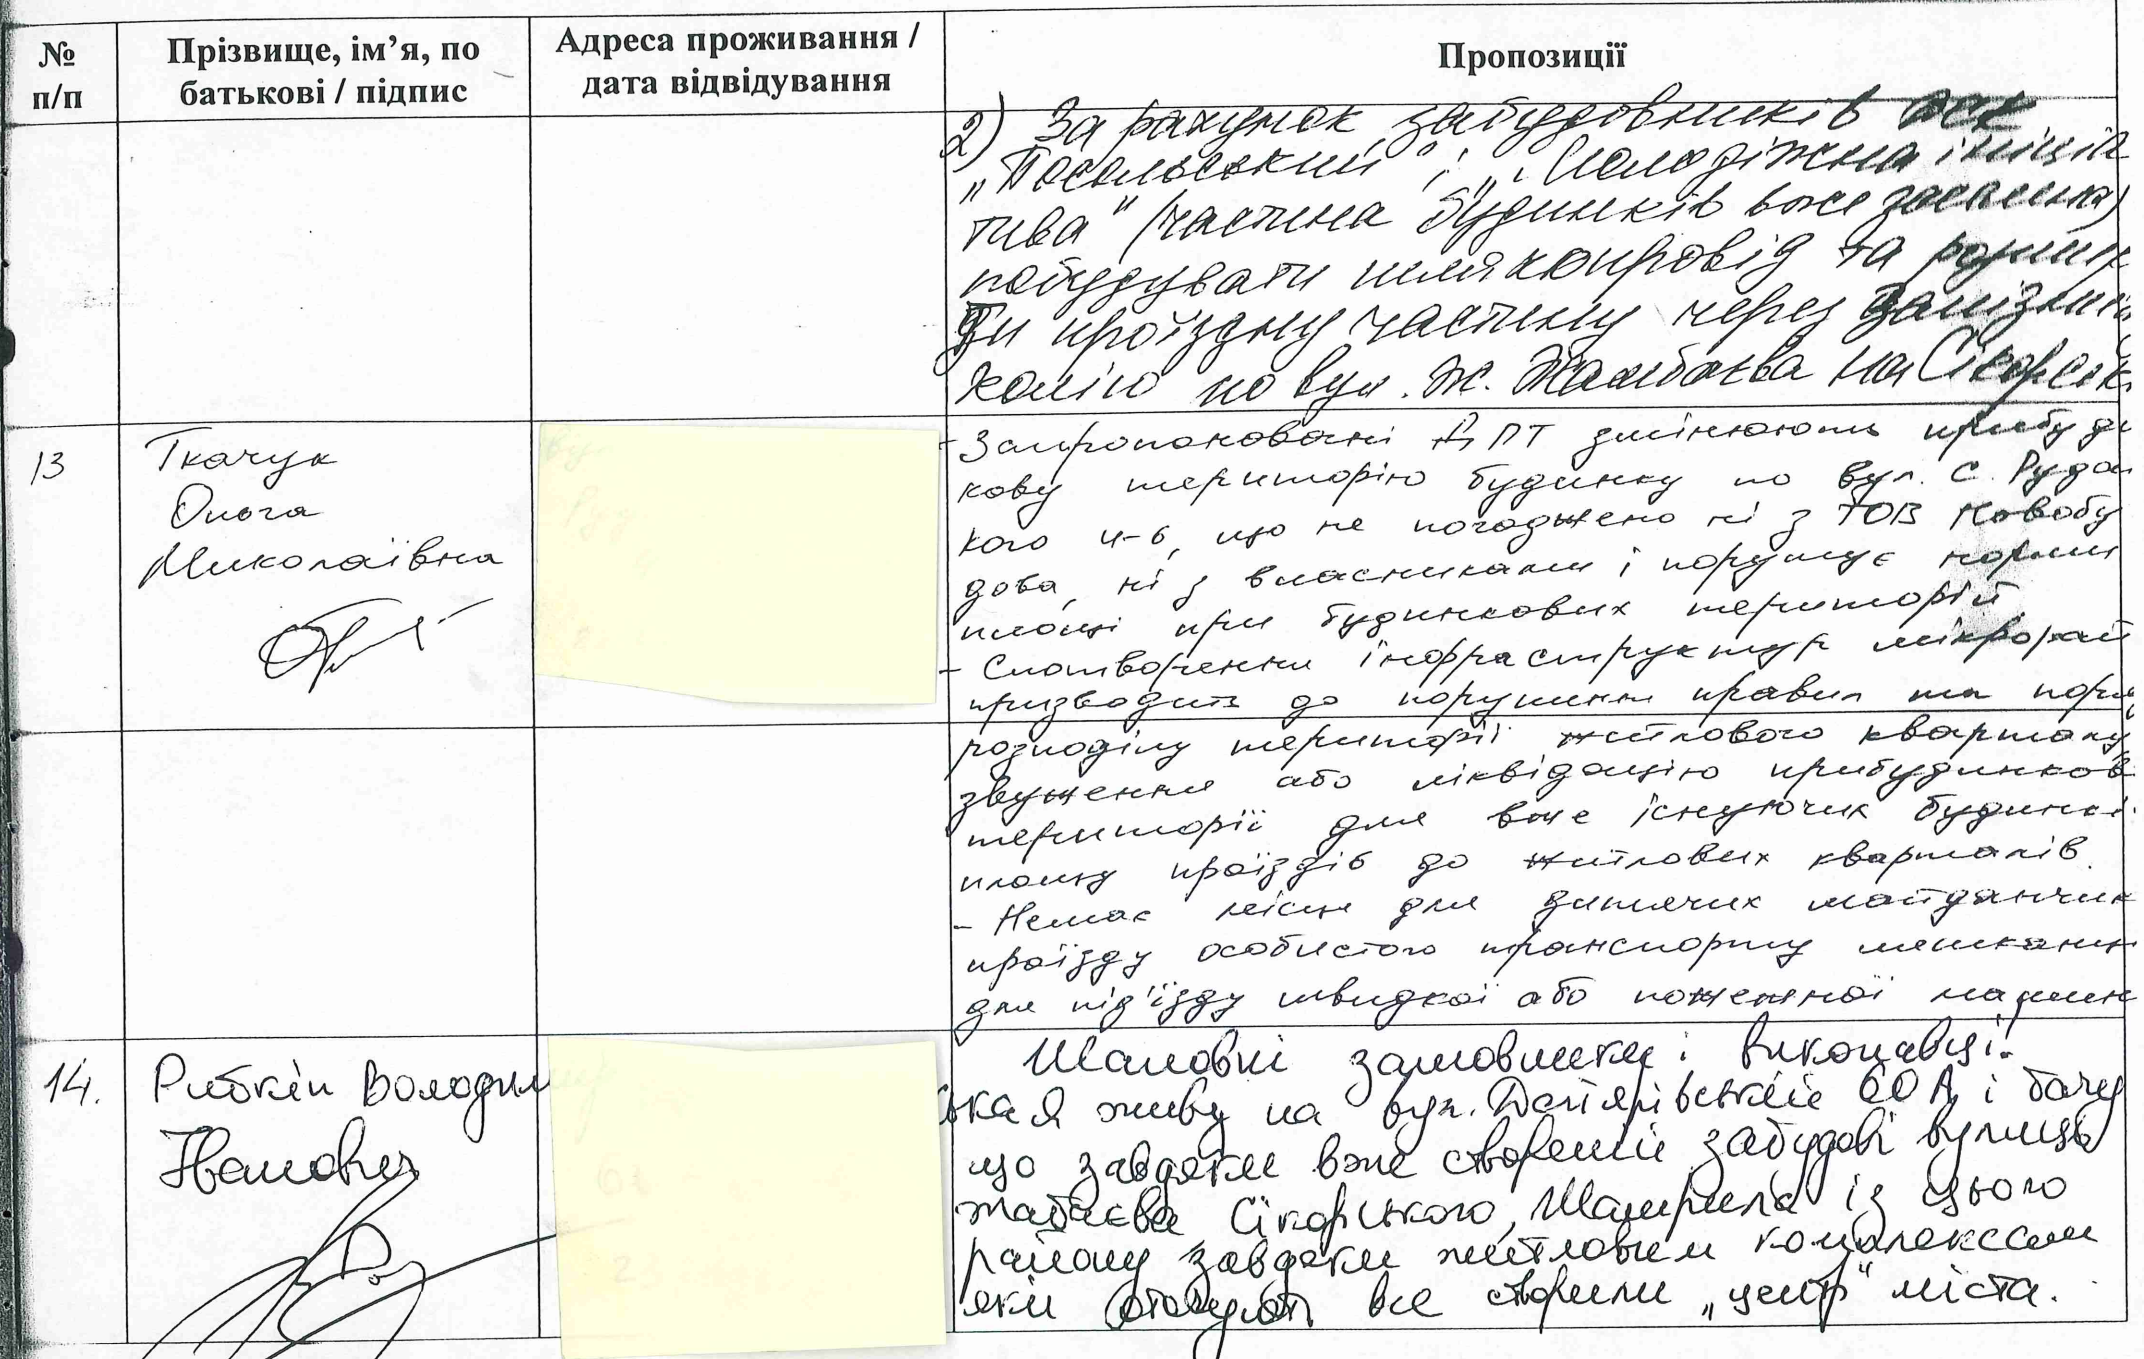 № п/п
Прізвище, ім’я, по батькові / підпис
Адреса проживання / дата відвідування
Пропозиції
2) За рахунок забудовників ЖК
„Посольський“; „Молодіжна ініціа
тива“ (частина будинків вже заселена)
побудувати шляхопровід та розши
ти проїздну частину через залізни
колію по вул. Ж. Жамбаєва на Сікорськ
13
Ткачук
Ольга
Миколаївна
- Запропоновані ДПТ змінюють прибуди
кову територію будинку по вул. С. Рудан
кого 4-6, що не погоджено ні з ТОВ Новобу
дова, ні з власниками і порушує норми
площі при будинкових територій
- Спотворення інфраструктур мікрорай
призводить до порушення правил та норм
розподілу території житлового кварталу
звуження або ліквідацію прибудинков
території для вже існуючих будинкі
площу проїздів до житлових кварталів.
- Немає місця для дитячих майданчик
проїзду особистого транспорту мешканц
для під'їзду швидкої або пожежної машин
14.
Рибкін Володим
Іванович
Шановні замовники і виконавці!
ська Я живу на вул. Дегтярівській 60А і бачу
що завдяки вже створеній забудові вулиць
Жабаєва Сікорського, Шамрила із цього
району завдяки житловим комплексам
які оточують вже створили „центр“ міста.